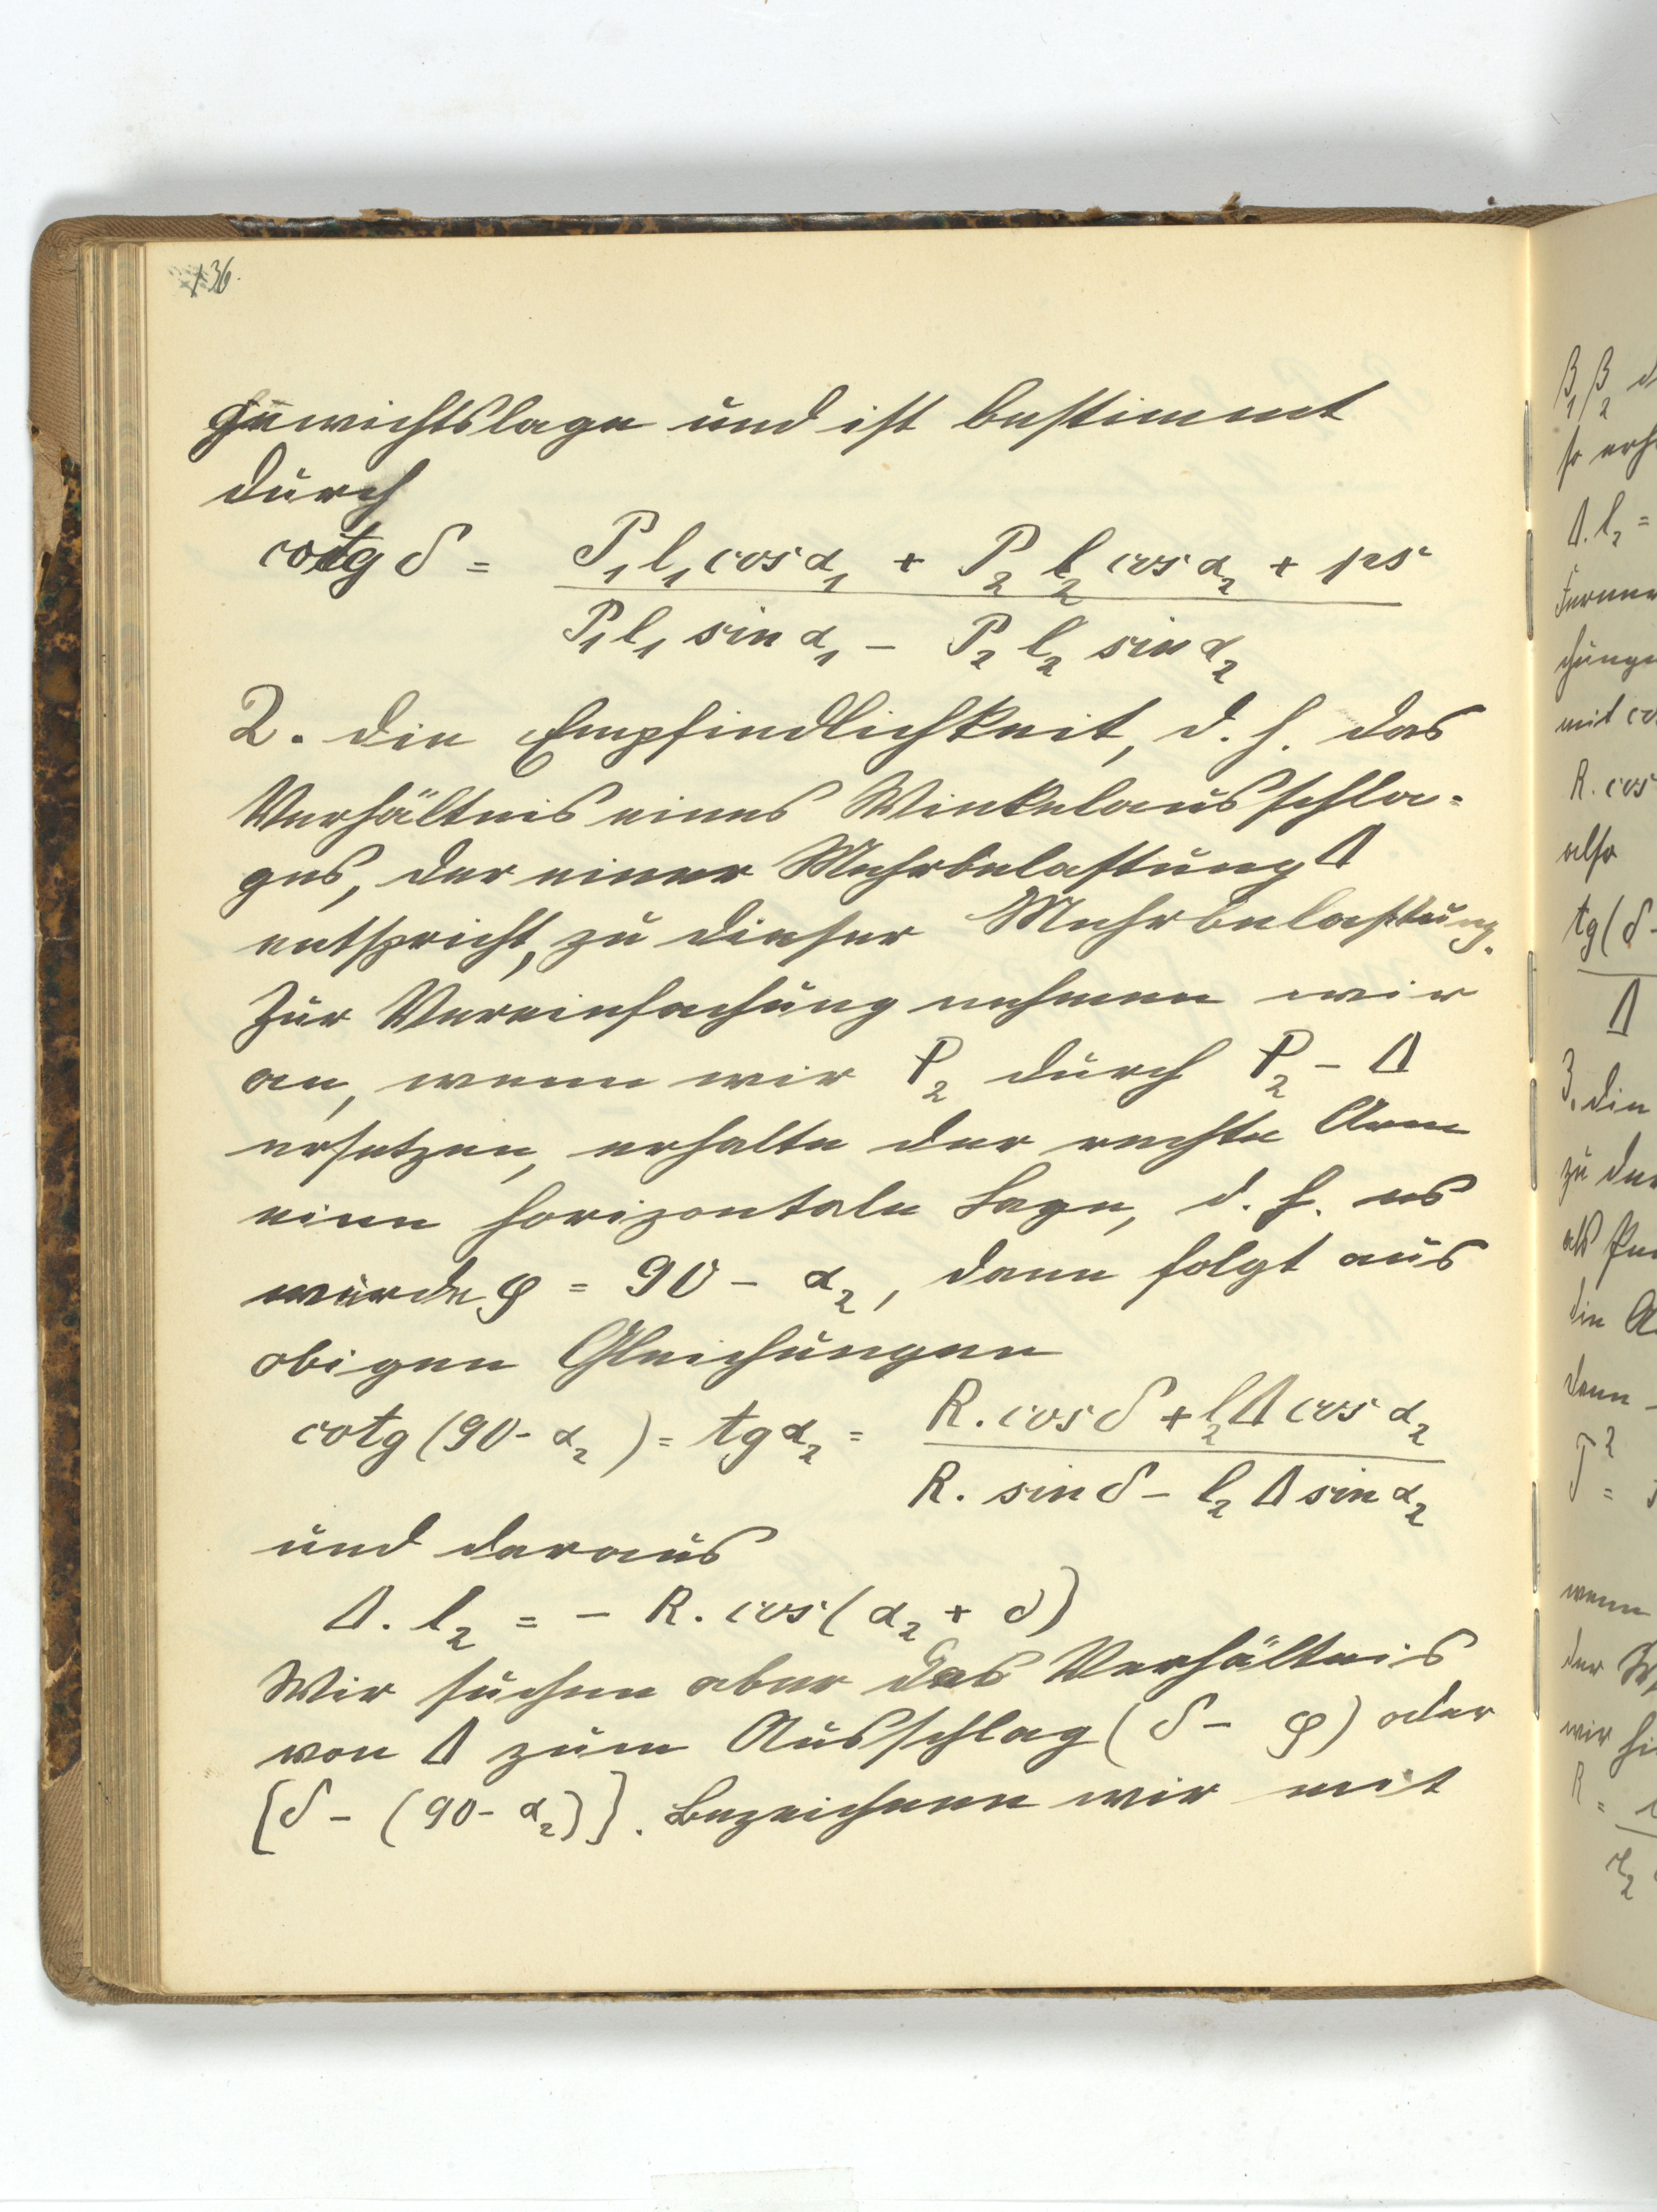 136.
gewichtslage und ist bestimmt
durch
cotg δ = (P₁l₁cosα₁ + P₂l₂cosα₂ + ps) / (P₁l₁ sinα₁ - P₂l₂ sinα₂)
2. die Empfindlichkeit, d. h. das
Verhältnis eines Winkelausschla-
ges, der einer Mehrbelastung Δ
entspricht, zu dieser Mehrbelastung.
Zur Vereinfachung nehmen wir
an, wenn wir P₂ durch P₂ - Δ
ersetzen, erhalte der rechte Arm
eine horizontale Lage, d. h. es
würde φ = 90 - α₂, dann folgt aus
obigen Gleichungen
cotg (90 - α₂) = tgα₂ = (R. cosδ + l₂Δ cosα₂) / (R. sinδ - l₂Δ sinα₂)
und daraus
Δ. l₂ = - R. cos(α₂ + δ)
Wir suchen aber das Verhältnis
von Δ zum Ausschlag (δ - φ) oder
[δ - (90 - α₂)]. Bezeichnen wir mit
β₁ β₂
so
Δ. l₂ =
mit
R. cos
also
tg(δ -
Δ
3. die
zu
als
die
dann
T² =
wenn
der
wir
R =